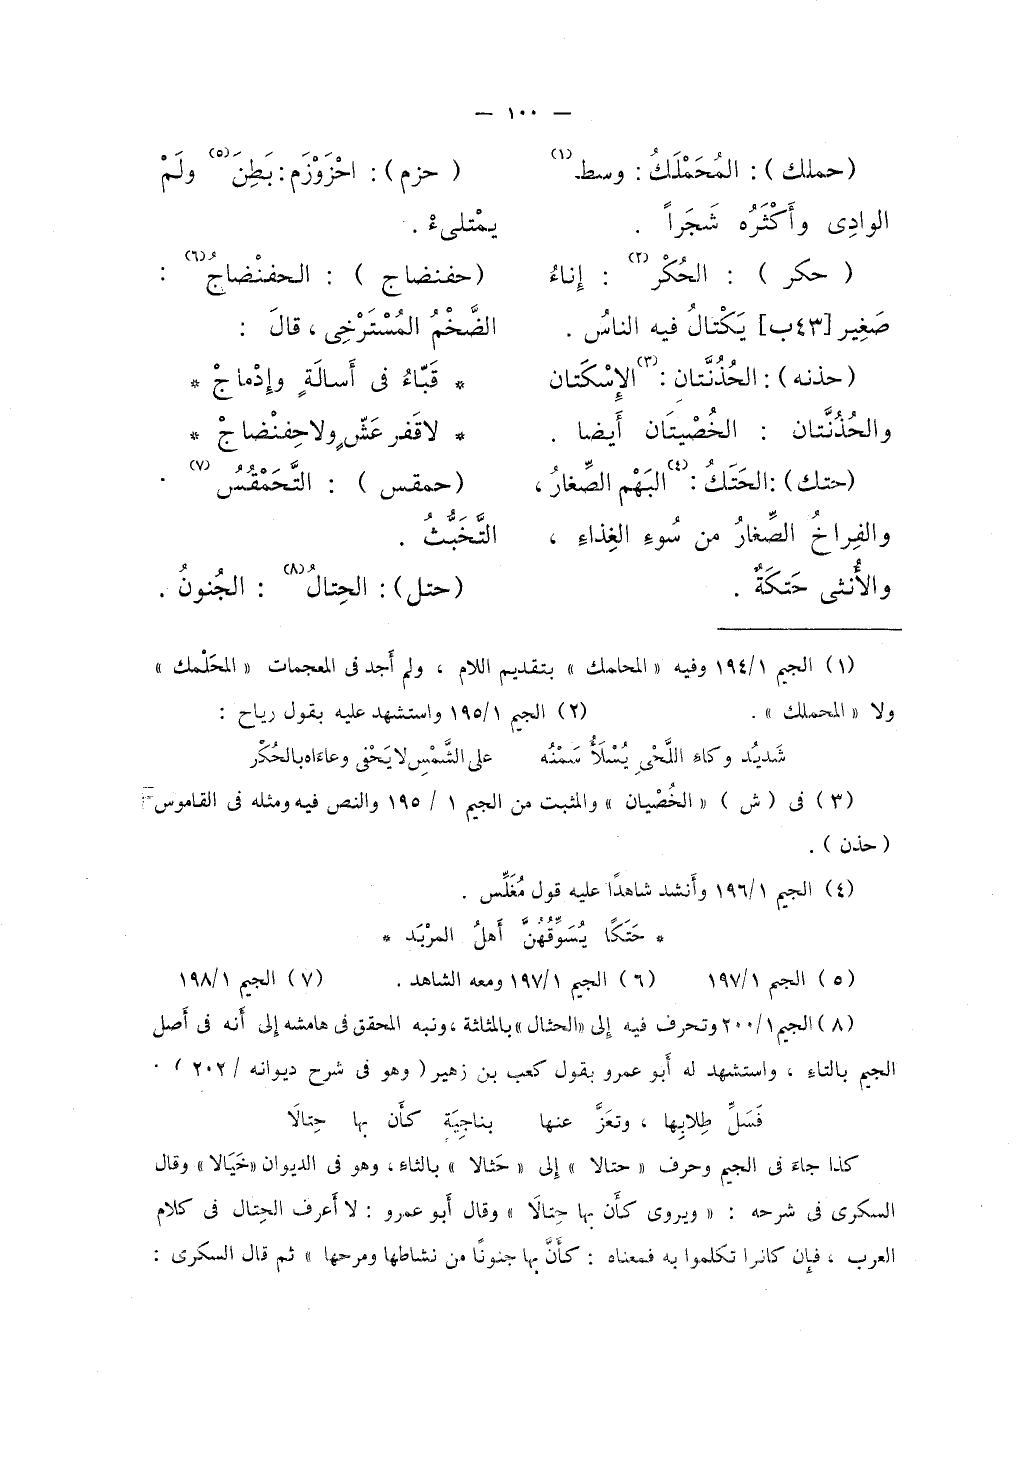 — ١٠٠ —
(حملك) : المُحَمْلَكُ : وسط(١)
الوادِى وأَكْثَرُه شَجَراً .
( حكر ) : الحُكْرُ(٢) : إِناءُ
صَغِير [٤٣ب] يَكْتالُ فيه الناسُ .
(حذنه) : الحُذُنَّتان :(٣) الإِسْكَتان
والحُذُنَّتان : الخُصْيتَان أَيضا .
(حتك) : الحَتَكُ :(٤) البَهْم الصِّغارُ ،
والفِراخُ الصِّغارُ من سُوءِ الغِذاءِ ،
والأُنثى حَتَكَةٌ .
( حزم ) : احْزَوْزَم : بَطِنَ(٥) ولَمْ
يمْتلىءْ .
(حفنضاج ) : الحفنْضاجُ(٦) :
الضَّخْمُ المُسْتَرْخِى ، قالَ :
* قَبّاءُ فى أَسالَةٍ وإِدْماجْ *
* لاقَفر عَشّ ولاحِفنْضاجْ *
(حمقس ) : التَّحَمْقُسُ(٧) .
التَّخَبُّثُ .
(حتل) : الحِتالُ(٨) : الجُنونُ .
(١) الجيم ١٩٤/١ وفيه « المحامك » بتقديم اللام ، ولم أَجد فى المعجمات « المحَلْمك »
ولا « المحملك » . (٢) الجيم ١٩٥/١ واستشهد عليه بقول رياح :
شَدِيُد وكاءِ اللَّحْىِ يُسْلَأُ سَمْنُه على الشَّمْسِ لا يَحْفى وعاءَاه بالحُكْر
(٣) فى ( ش ) « الخُصْيان » والمثبت من الجيم ١ / ١٩٥ والنص فيه ومثله فى القاموس
( حذن ) .
(٤) الجيم ١٩٦/١ وأَنشد شاهدًا عليه قول مُغَلِّس .
* حَتَكًا يُسَوِّقُهُنَّ أَهلُ المرْبَد *
(٥) الجيم ١٩٧/١ (٦) الجيم ١٩٧/١ ومعه الشاهد . (٧) الجيم ١٩٨/١
(٨) الجيم ٢٠٠/١ وتحرف فيه إِلى «الحثال» بالمثاثة ، ونبه المحقق فى هامشه إِلى أَنه فى أَصل
الجيم بالتاءِ ، واستشهد له أَبو عمرو بقول كعب بن زهير ( وهو فى شرح ديوانه / ٢٠٢ ) .
فَسَلِّ طِلابِها ، وتعَزَّ عنها بناجِيَةِ كأَن بها حِتالَا
كذا جاءَ فى الجيم وحرف « حتالا » إِلى « حَثالا » بالثاءِ ، وهو فى الديوان «خَيَالا» وقال
السكرى فى شرحه : « ويروى كأَن بها حِتالَا » وقال أَبو عمرو : لا أَعرف الحِتال فى كلام
العرب ، فإِن كانرا تكلموا به فمعناه : كأَنَّ بها جنونًا من نشاطها ومرحها » ثم قال السكرى :